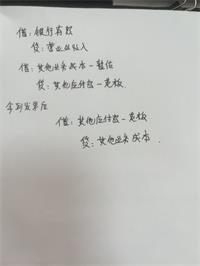 借：银行存款
贷：营业外收入
借：其他业务成本－暂估
贷：其他应付款－老板
拿到发票后
借：其他应付款－老板
贷：其他业务成本.